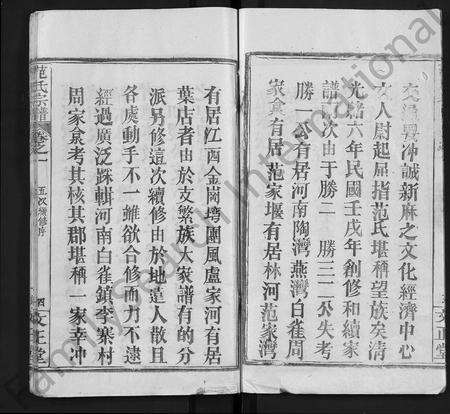 交通與冲誠新麻之文化經濟中心
人尉起屈指范氏堪稱望族矣清
光緒六年民國壬戌年創修和續家
譜二次由于勝二 勝三二公失考
勝一公有居河南陶灣燕灣白雀周
家𡊕有居范家堰有居林河范家灣
文正堂
有居江西金崗塆團風盧家河有居
葉店者由於支繁族大家譜有的分
派另修這次續修由於地違人散且
各處動手不一雖欲合修而力不逮
經過廣泛踩輯河南白雀鎮李寨村
周家𡊕考其核其郡堪稱一家幸冲
范氏宗譜
卷之一
五次續修序
四
文正堂
FamilySearch International